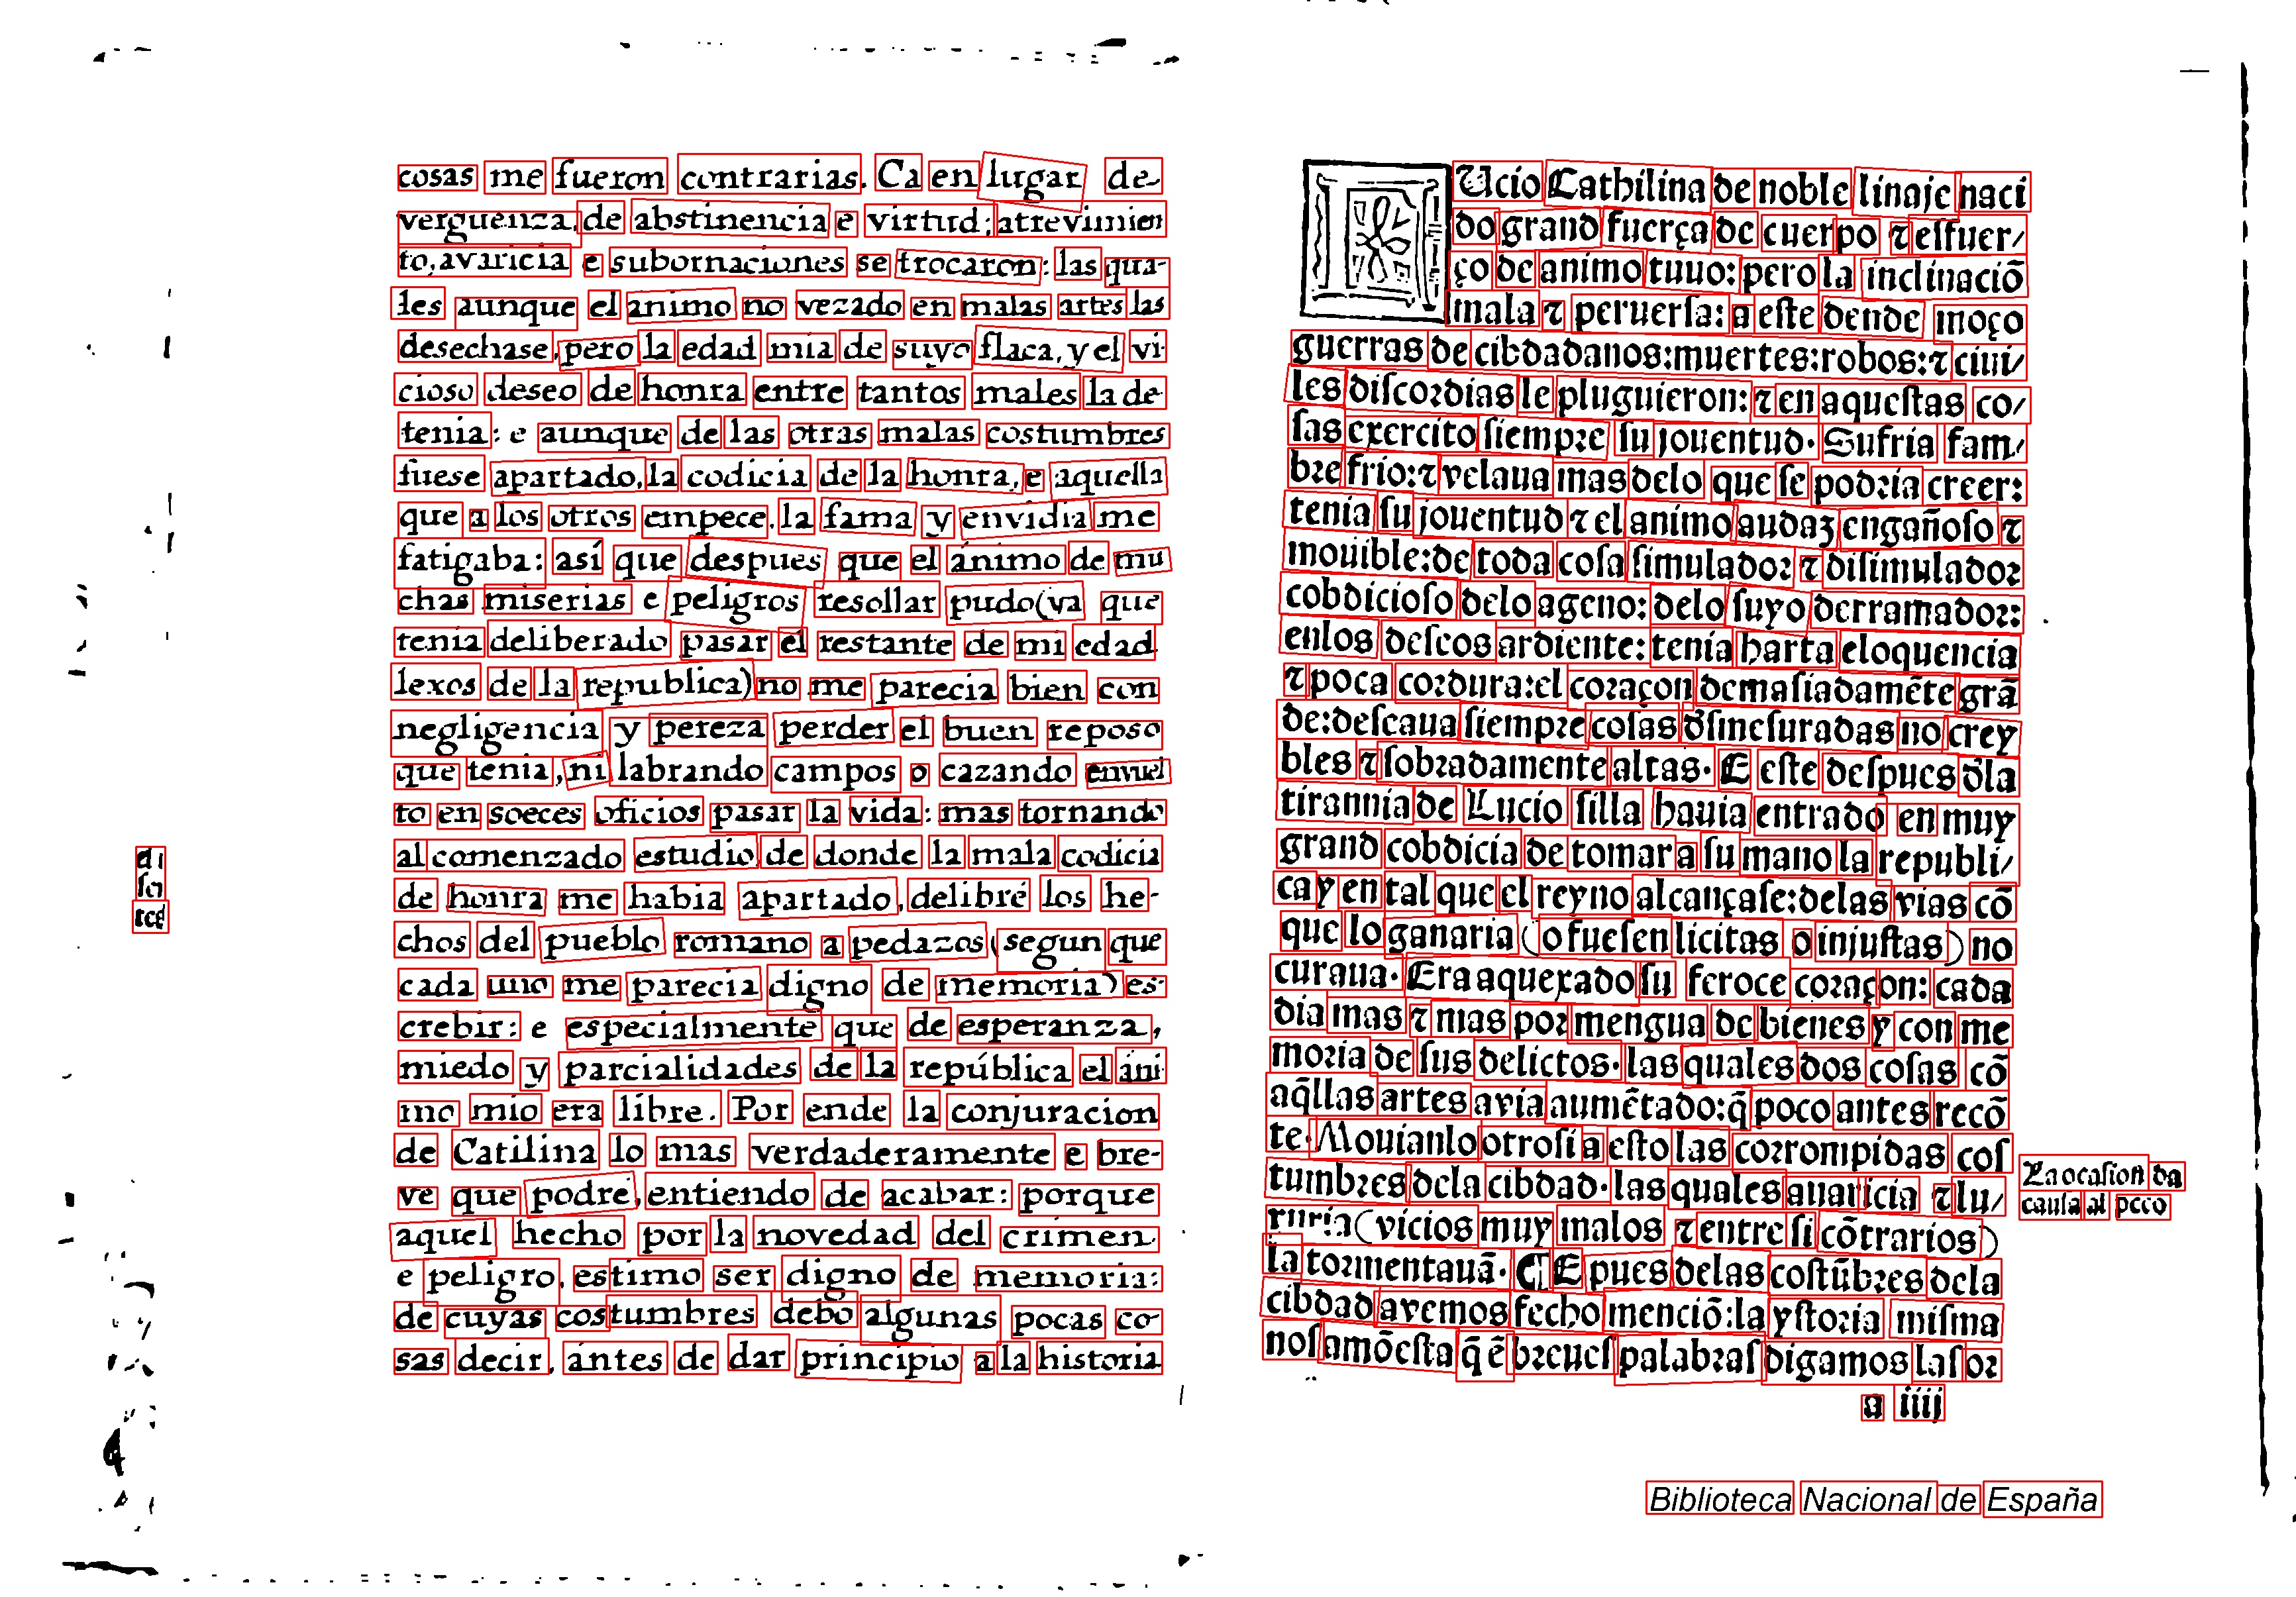 cosas me fueron contrarias. Ca en lugar de
verguenza, de abstinencia e virtud; atrevimien
to, avaricia e subornaciones se trocaron: las qua-
les aunque el animo no vezado en malas artes las
desechase, pero la edad mia de suyo flaca, y el vi-
cioso deseo de honra entre tantos males la de-
tenia: e aunque de las otras malas costumbres
fuese apartado, la codicia de la honra, e aquella
que a los otros empece, la fama y envidia me
fatigaba: así que despues que el ánimo de mu
chas miserias e peligros resollar pudo (ya que
tenia deliberado pasar el restante de mi edad
lexos de la republica) no me parecia bien con
negligencia y pereza perder el buen reposo
que tenia, ni labrando campos o cazando envuel
to en soeces oficios pasar la vida: mas tornando
al comenzado estudio, de donde la mala codicia
de honra me habia apartado, delibré los he-
chos del pueblo romano a pedazos (segun que
cada uno me parecia digno de memoria) es-
crebir: e especialmente que de esperanza,
miedo y parcialidades de la república el áni
mo mio era libre. Por ende la conjuracion
de Catilina lo mas verdaderamente e bre-
ve que podré, entiendo de acabar: porque
aquel hecho por la novedad del crimen
e peligro, estimo ser digno de memoria:
de cuyas costumbres debo algunas pocas co-
sas decir, ántes de dar principio a la historia
Ucio Cathilina de noble linaje naci
do grand fuerça de cuerpo ⁊ esfuer-
ço de animo tuuo: pero la inclinaciõ
mala ⁊ peruersa: a este dende moço
guerras de cibdadanos: muertes: robos: ⁊ ciui-
les discordias le pluguieron: ⁊ en aquestas co-
sas exercito siempre su jouentud. Sufria fam-
bre frio: ⁊ velaua mas delo que se podria creer:
tenia su jouentud ⁊ el animo audaz engañoso ⁊
mouible: de toda cosa simulador ⁊ disimulador
cobdicioso delo ageno: delo suyo derramador:
enlos deseos ardiente: tenia harta eloquencia
⁊ poca cordura: el coraçon demasiadamẽte grã
de: deseaua siempre cosas d̃smesuradas no crey
bles ⁊ sobradamente altas. E este despues d̃la
tirannia de Lucio silla hauia entrado en muy
grand cobdicia de tomar a su mano la republi-
ca y en tal que el reyno alcançase: delas vias cõ
que lo ganaria (o fuesen licitas o injustas) no
curaua. Era aquexado su feroce coraçon: cada
dia mas ⁊ mas por mengua de bienes y con me
moria de sus delictos. las quales dos cosas cõ
aq̃llas artes avia aumẽtado: q̃ poco antes recõ
te. Mouianlo otrosi a esto las corrompidas cos
tumbres dela cibdad. las quales auaricia ⁊ lu-
xuria (vicios muy malos ⁊ entre si cõtrarios)
la tormentauã. ¶ E pues delas costũbres dela
cibdad avemos fecho menciõ: la ystoria misma
nos amõesta q̃ ẽ breues palabras digamos las or
La ocasion da
causa al pcco
a iiij
Biblioteca Nacional de España